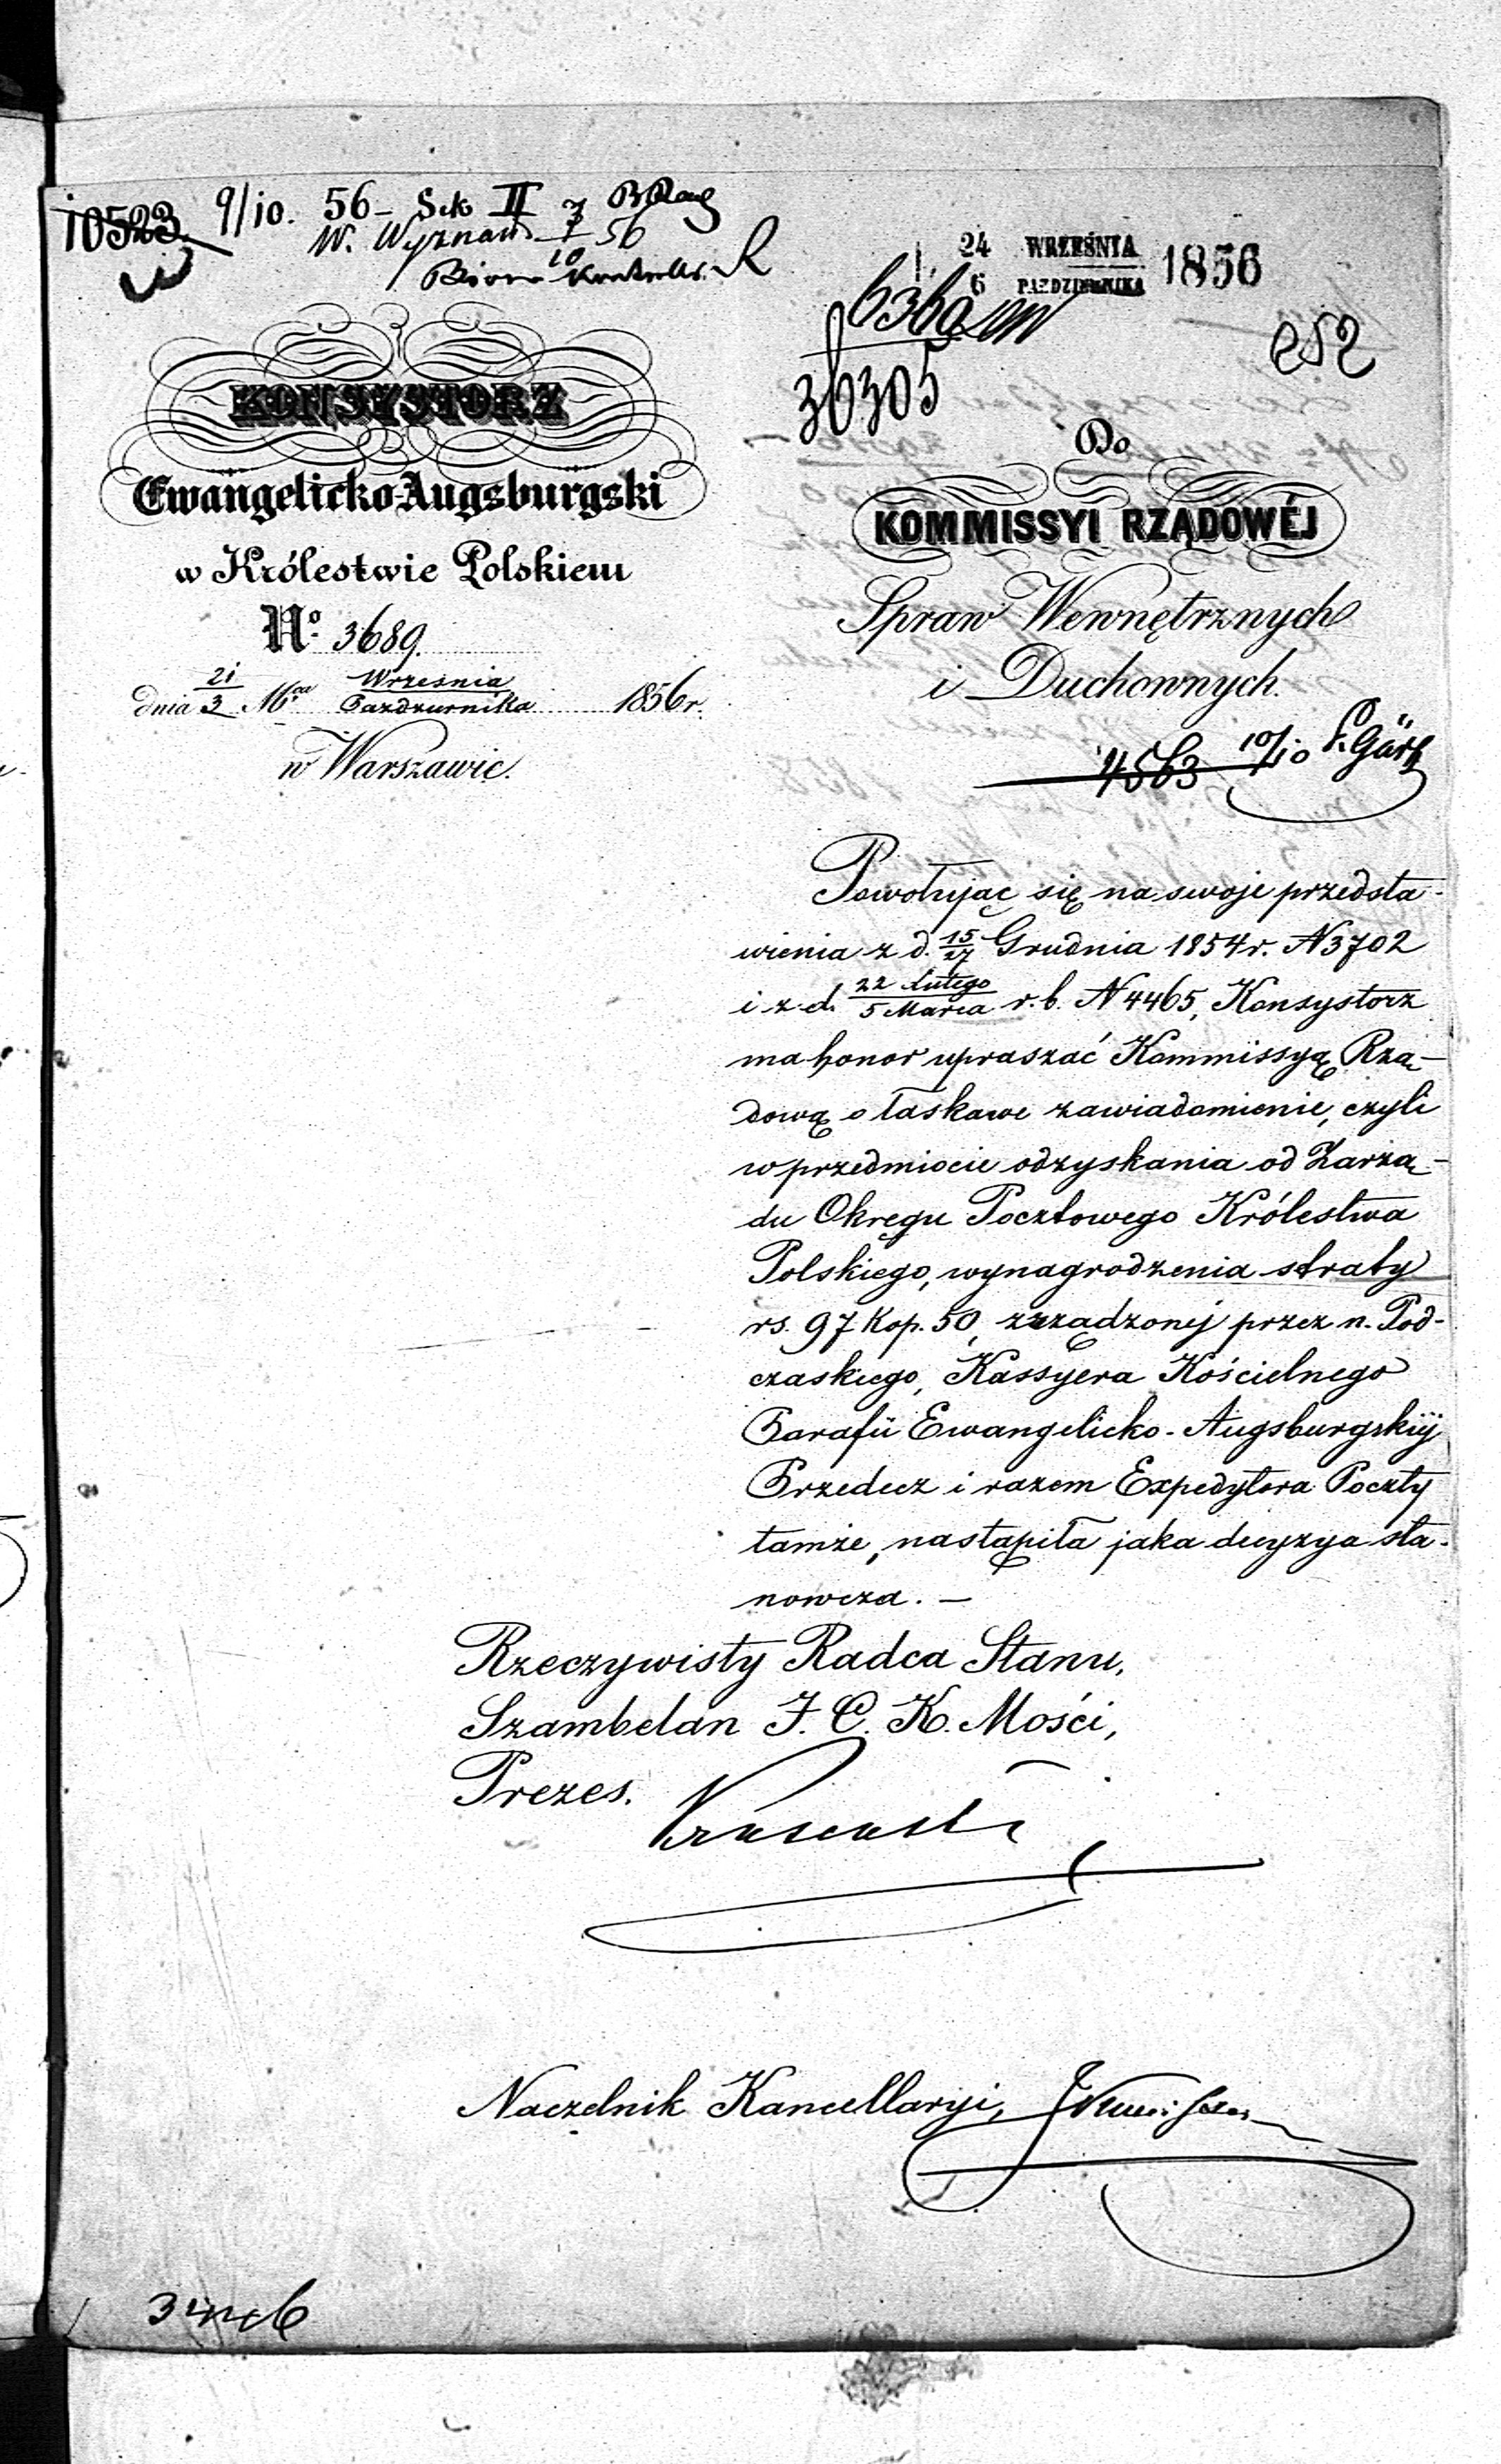 10523 9/10. 56 - Sek II
W. Wyznań 7/10 56
Biuro Kontroll.
24 WRZEŚNIA
6 PAŹDZIERNIKA 1856
6360
36305
252
KONSYSTORZ
Ewangelicko-Augsburgski
w Królestwie Polskiem
No. 3689.
dnia 21/3 Mca Września/Października 1856 r.
w Warszawie.
Do
KOMMISSYI RZĄDOWÉJ
Spraw Wewnętrznych
i Duchownych.
4563 10/10
Powołując się na swoje przedsta-
wienia z d. 15/27 Grudnia 1854 r. N 3702
i z d. 22 Lutego/5 Marca r. b. N 4465, Konsystorz
ma honor upraszać Kommissyą Rzą-
dową o łaskawe zawiadomienie, czyli
w przedmiocie odzyskania od Zarzą-
du Okręgu Pocztowego Królestwa
Polskiego, wynagrodzenia straty
rs. 97 kop. 50, zrządzonej przez n. Pod-
czaskiego, Kassyera Kościelnego
Parafii Ewangelicko-Augsburgskiej
Przedecz i razem Expedytora Poczty
tamże, nastąpiła jaka decyzya sta-
nowcza. —
Rzeczywisty Radca Stanu,
Szambelan J. C. K. Mości,
Prezes.
Naczelnik Kancellaryi,